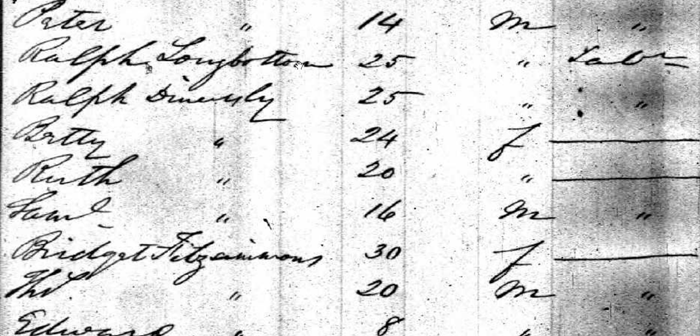 Peter " 14 m "
Ralph Longbottom 25 " Labr
Ralph Dinersly 25 " "
Betty " 24 f
Ruth " 20 "
Saml " 16 m "
Bridget Fitzsimmons 30 f
Thos. " 20 m "
Edward " 8 " "